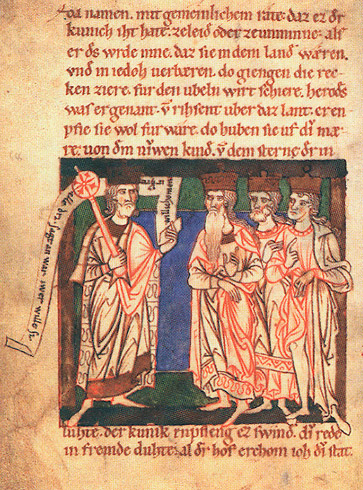 da namen. mit gemeinlichem rate. daz er dˢ
kunich iht hate. zeleid oder zeunminne. als
er des wrde inne. daz sie in dem land wæren.
vnd in iedoh verbæren. do giengen die rec
ken ziere. fur den ubeln wirt schiere. herodˢ
was er genant. vñ rihsent uber daz lant. er en
pfie sie wol fur ware. do huben sie uf di mæ
re. von dm niwen kind. vñ dem sterne dˢ in
willichomen
war iwer wille si
luhte. der kunik enpfieng ez swind. di rede
in fremde duhte. al dˢ hof erchom ioh di stat.